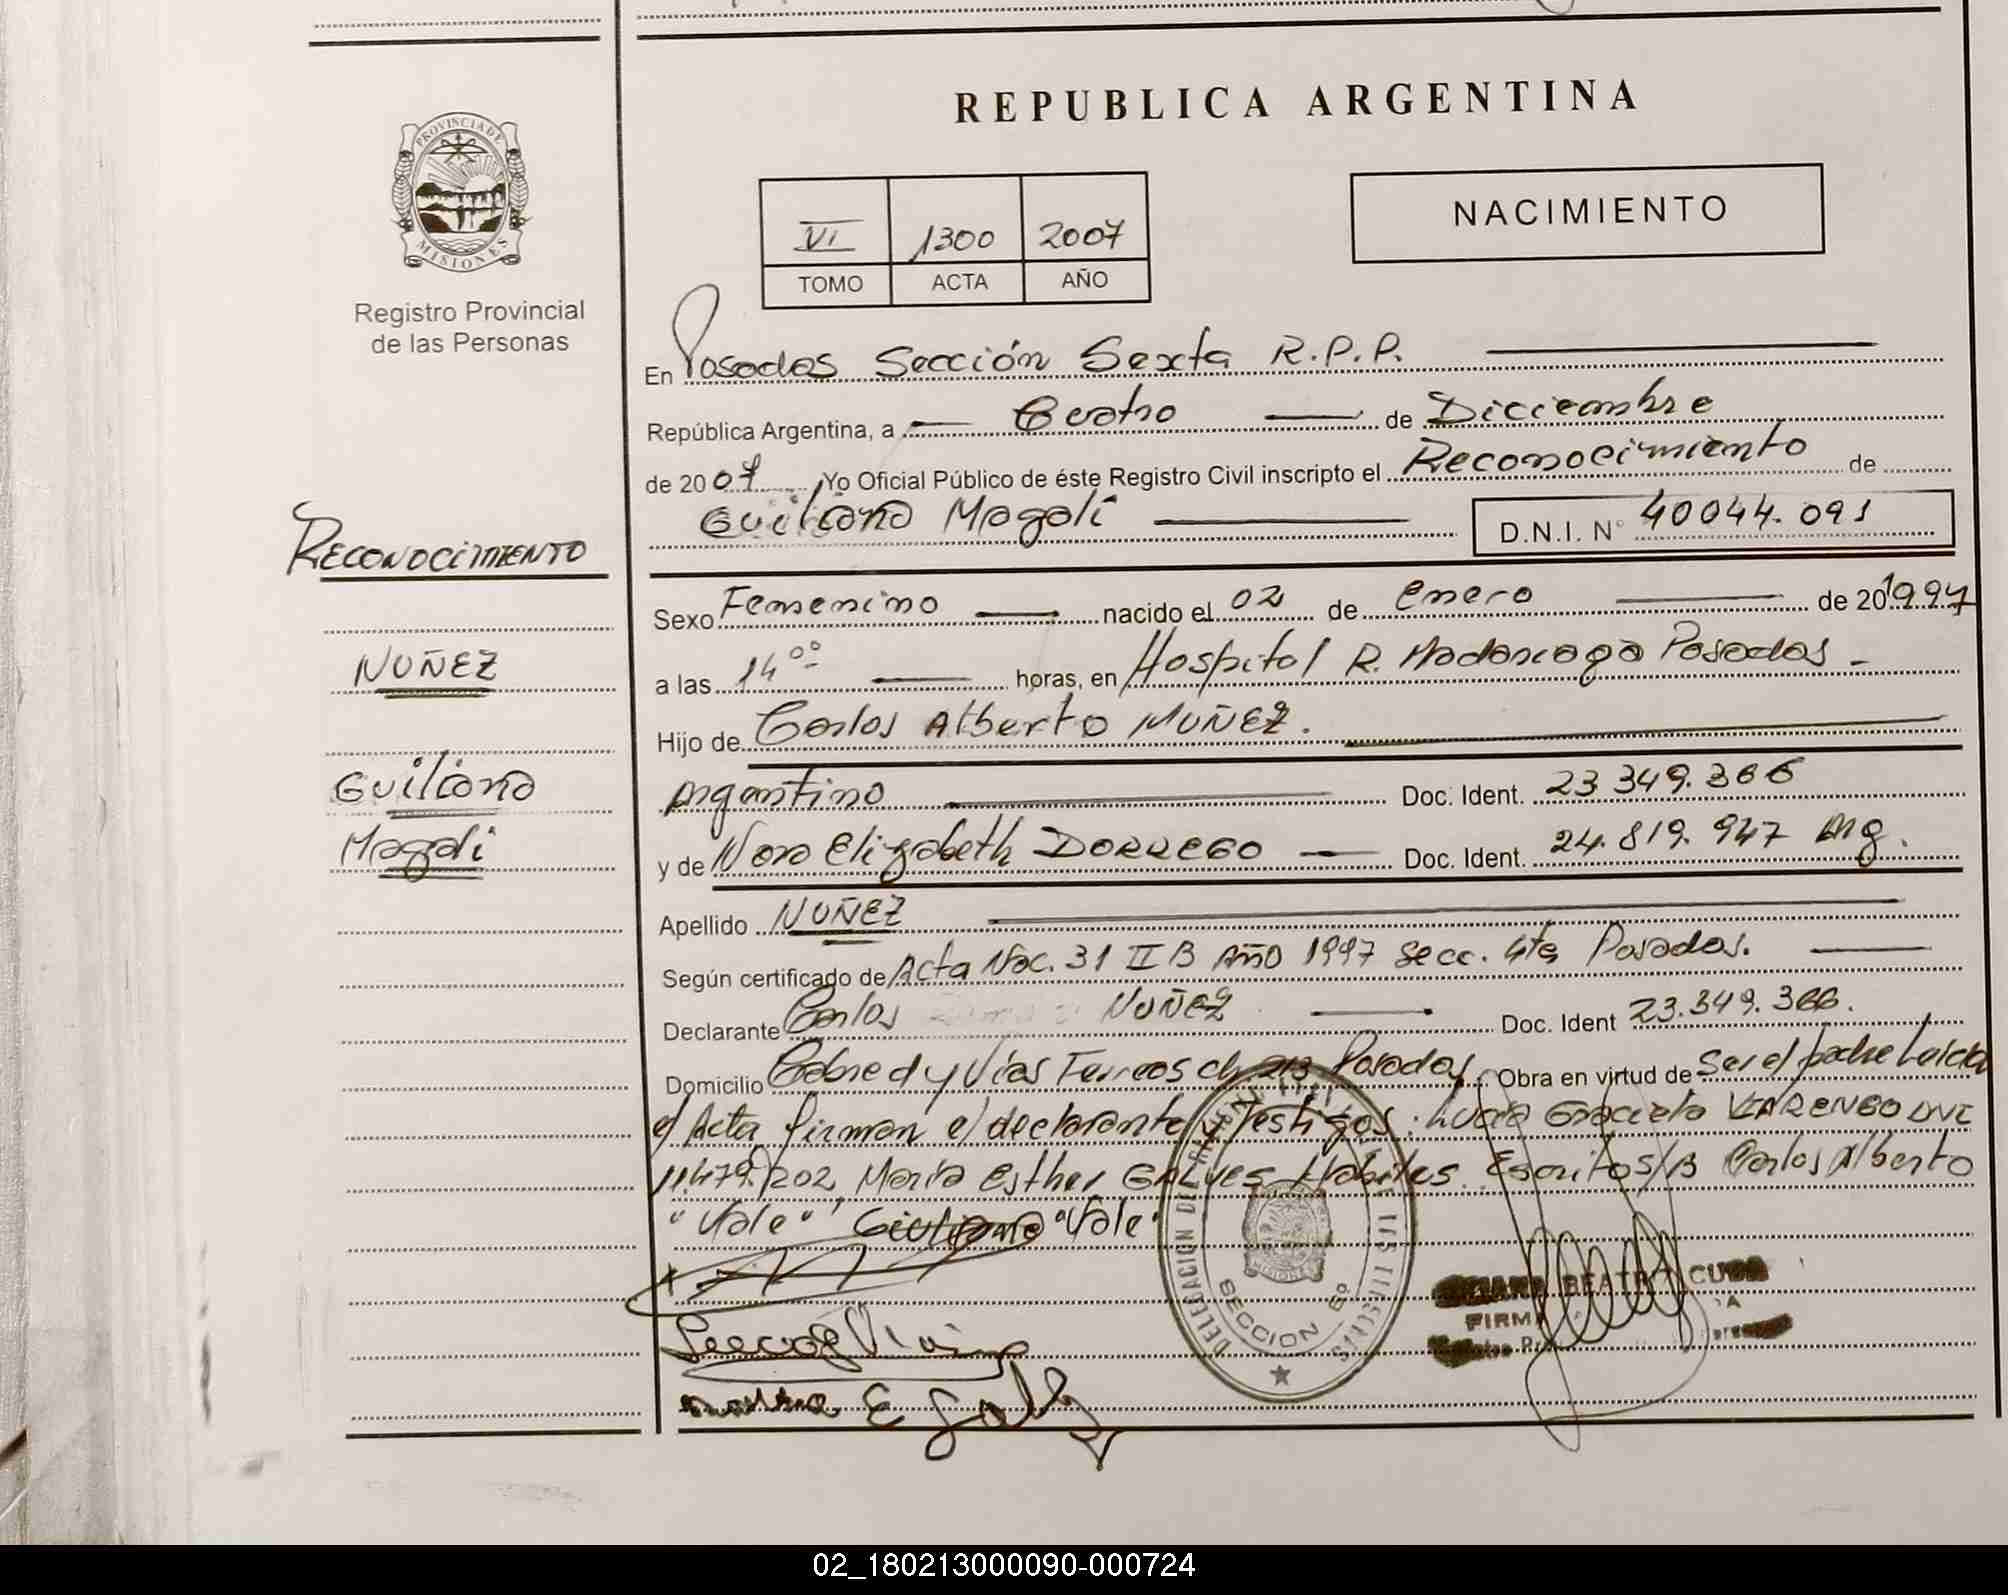 REPUBLICA ARGENTINA
PROVINCIA DE
MISIONES
Registro Provincial
de las Personas
VI 1300 2007
TOMO ACTA AÑO
NACIMIENTO
En Posadas Sección Sexta R.P.P.
República Argentina, a Cuatro de Diciembre
de 2007 Yo Oficial Público de éste Registro Civil inscripto el Reconocimiento de
Guiliana Magali D.N.I. N° 40044.091
RECONOCIMIENTO
NUÑEZ
Guiliana
Magali
Sexo Femenino nacido el 02 de Enero de 20 1997
a las 14°° horas, en Hospital R. Madariaga Posadas
Hijo de Carlos Alberto NUÑEZ.
Argentino Doc. Ident. 23 349.366
y de Nora Elizabeth DORREGO Doc. Ident. 24.819.947 Arg.
Apellido NUÑEZ
Según certificado de Acta Nac. 31 II B Año 1997 Secc. 4ta Posadas.
Declarante Carlos NUÑEZ Doc. Ident 23.349.366.
Domicilio y Vías Ferreas ch 213 Posadas Obra en virtud de Ser el padre Leida
el Acta firman el declarante y Testigos: Lucia Graciela VIARENGO DNI
11.479.202, María Esther GALVES Habiles. Escritos/B Carlos Alberto
"Vale", "Vale"
DELEGACION DE
SECCION 6°
BEATRIZ
FIRMA
02_180213000090-000724